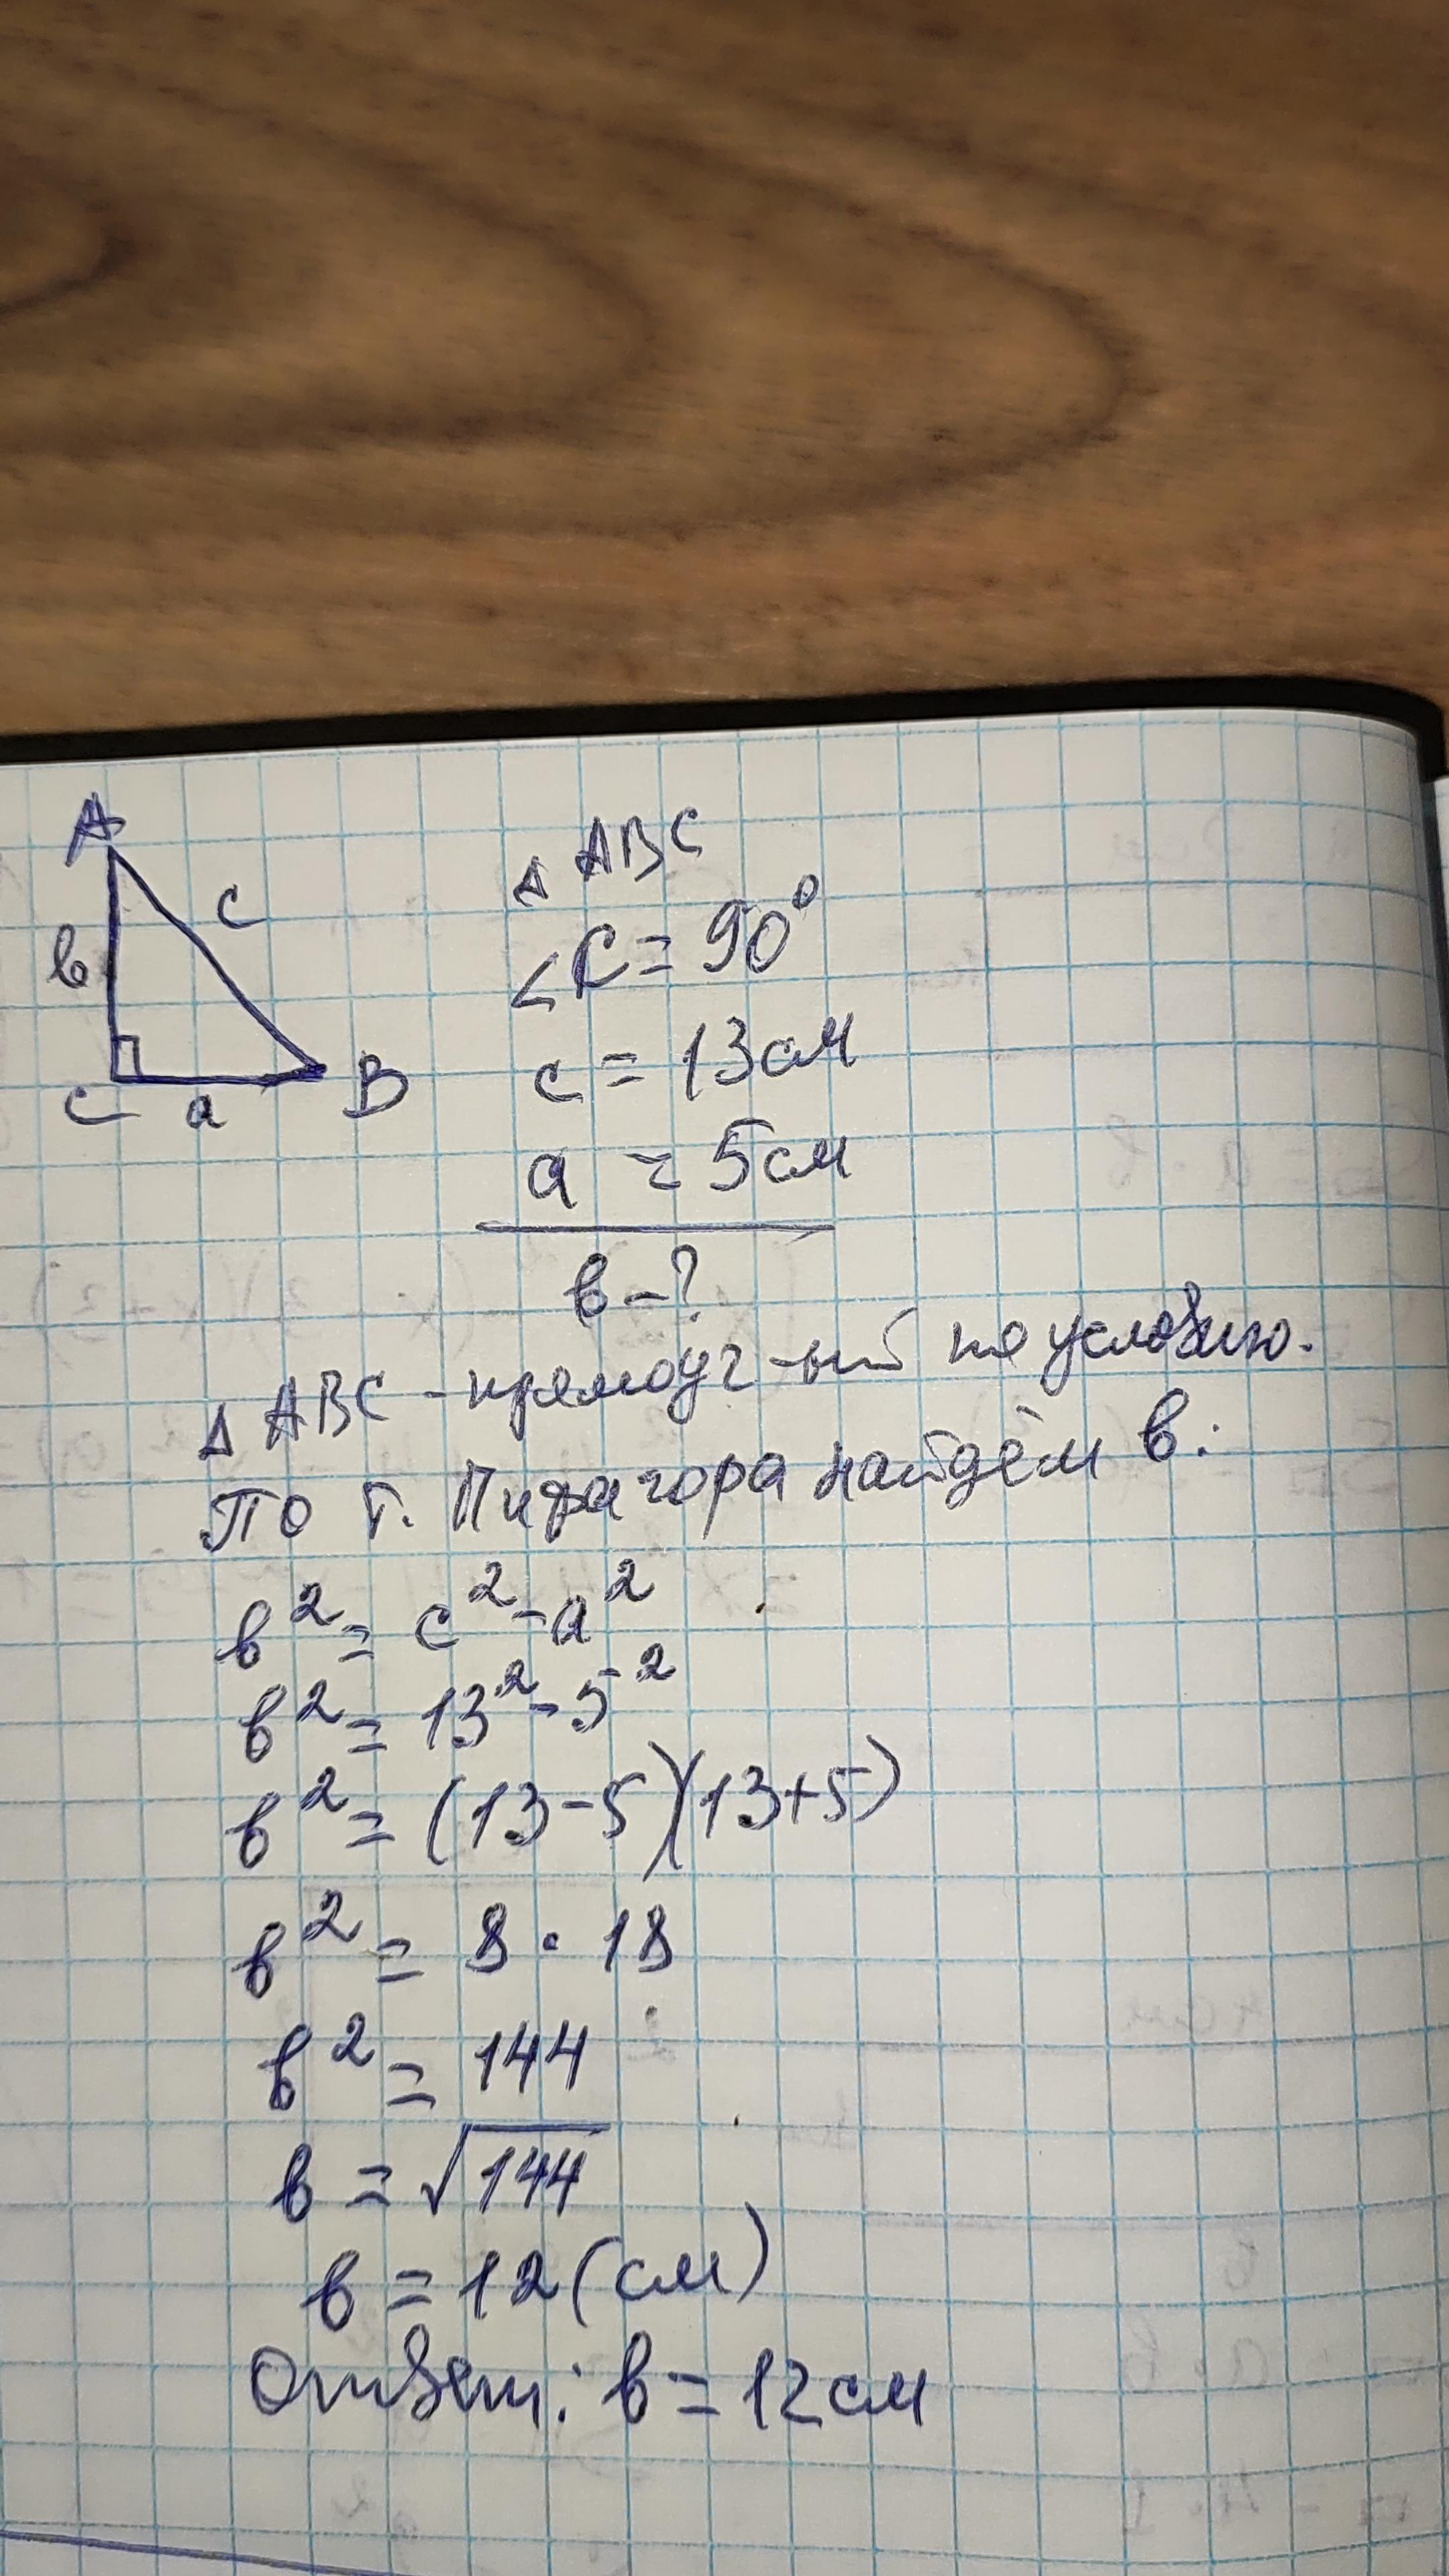 A
c
в
C
a
B
△ ABC
∠C = 90°
c = 13 см
a = 5 см
в - ?
△ ABC - прямоуг-ый по условию.
По т. Пифагора найдём в:
в² = c² - a²
в² = 13² - 5²
в² = (13-5)(13+5)
в² = 8 · 18
в² = 144
в = √144
в = 12 (см)
Ответ: в = 12 см